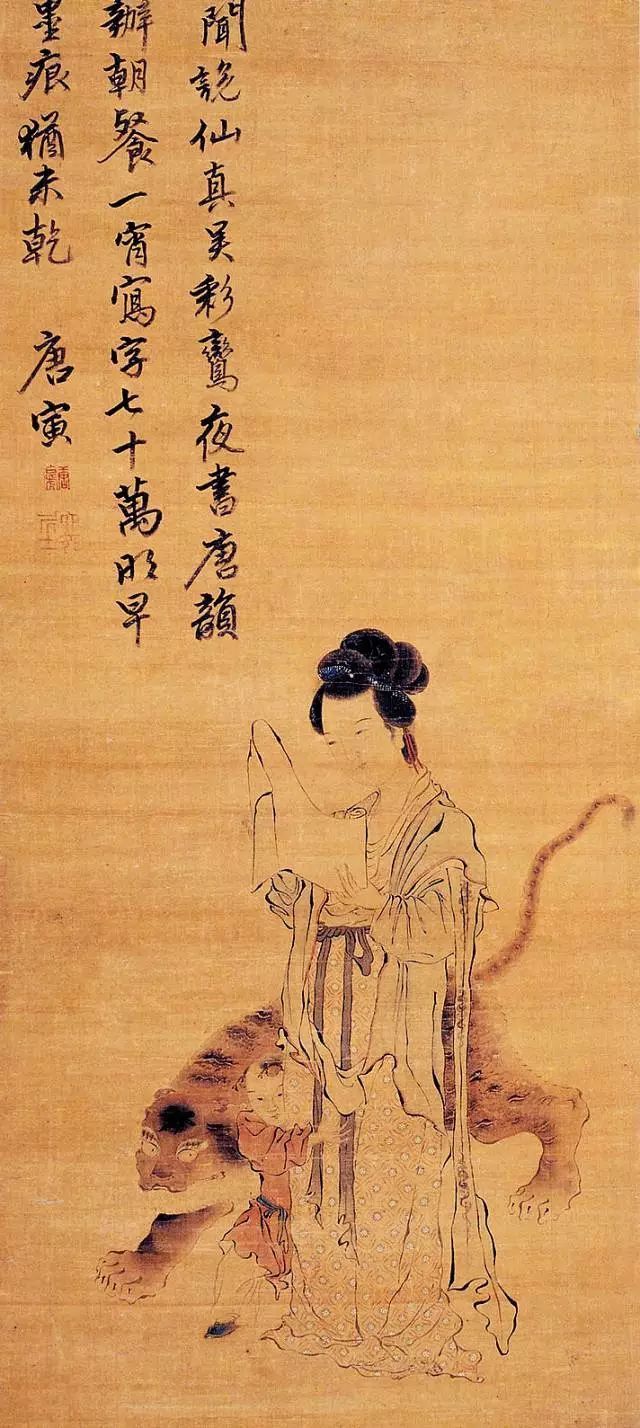 聞說仙真吳彩鸞夜書唐韻
辦朝餐一宵寫字七十萬明早
墨痕猶未乾 唐寅